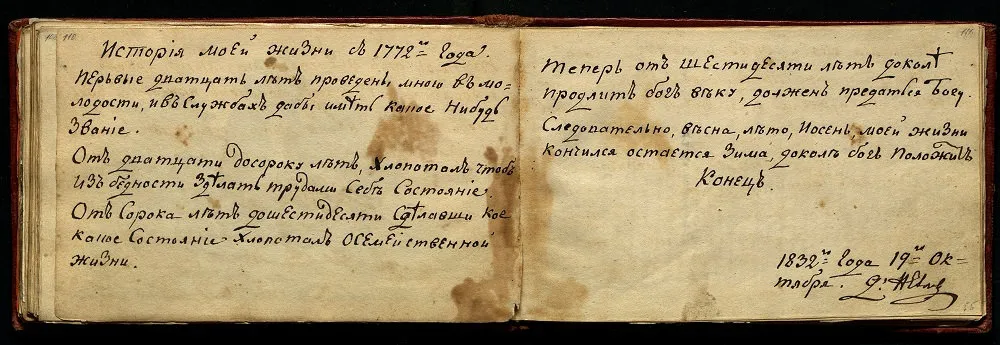 Исторія моей жизни съ 1772го Года.
Перьвые дватцать лѣтъ проведены мною въ мо-
лодости, ивъ Службахъ дабы имѣть какое Нибудь
Званіе.
Отъ дватцати Досороку лѣтъ, Хлопоталъ чтобъ
Изъ бѣдности Здѣлать трудами Себѣ Состояніе.
Отъ Сорока лѣтъ дошестидесяти Сдѣлавши кое
какое Состояніе Хлопоталъ Осемейственной
жизни.
Теперь отъ шестидесяти лѣтъ доколѣ
продлитъ богъ вѣку, должен предаться Богу.
Следовательно, вѣсна, лѣто, Иосень, моей жизни
Кончился остается Зима, доколѣ богъ Положитъ
Конецъ.
1832го Года 19го Ок=
тября.